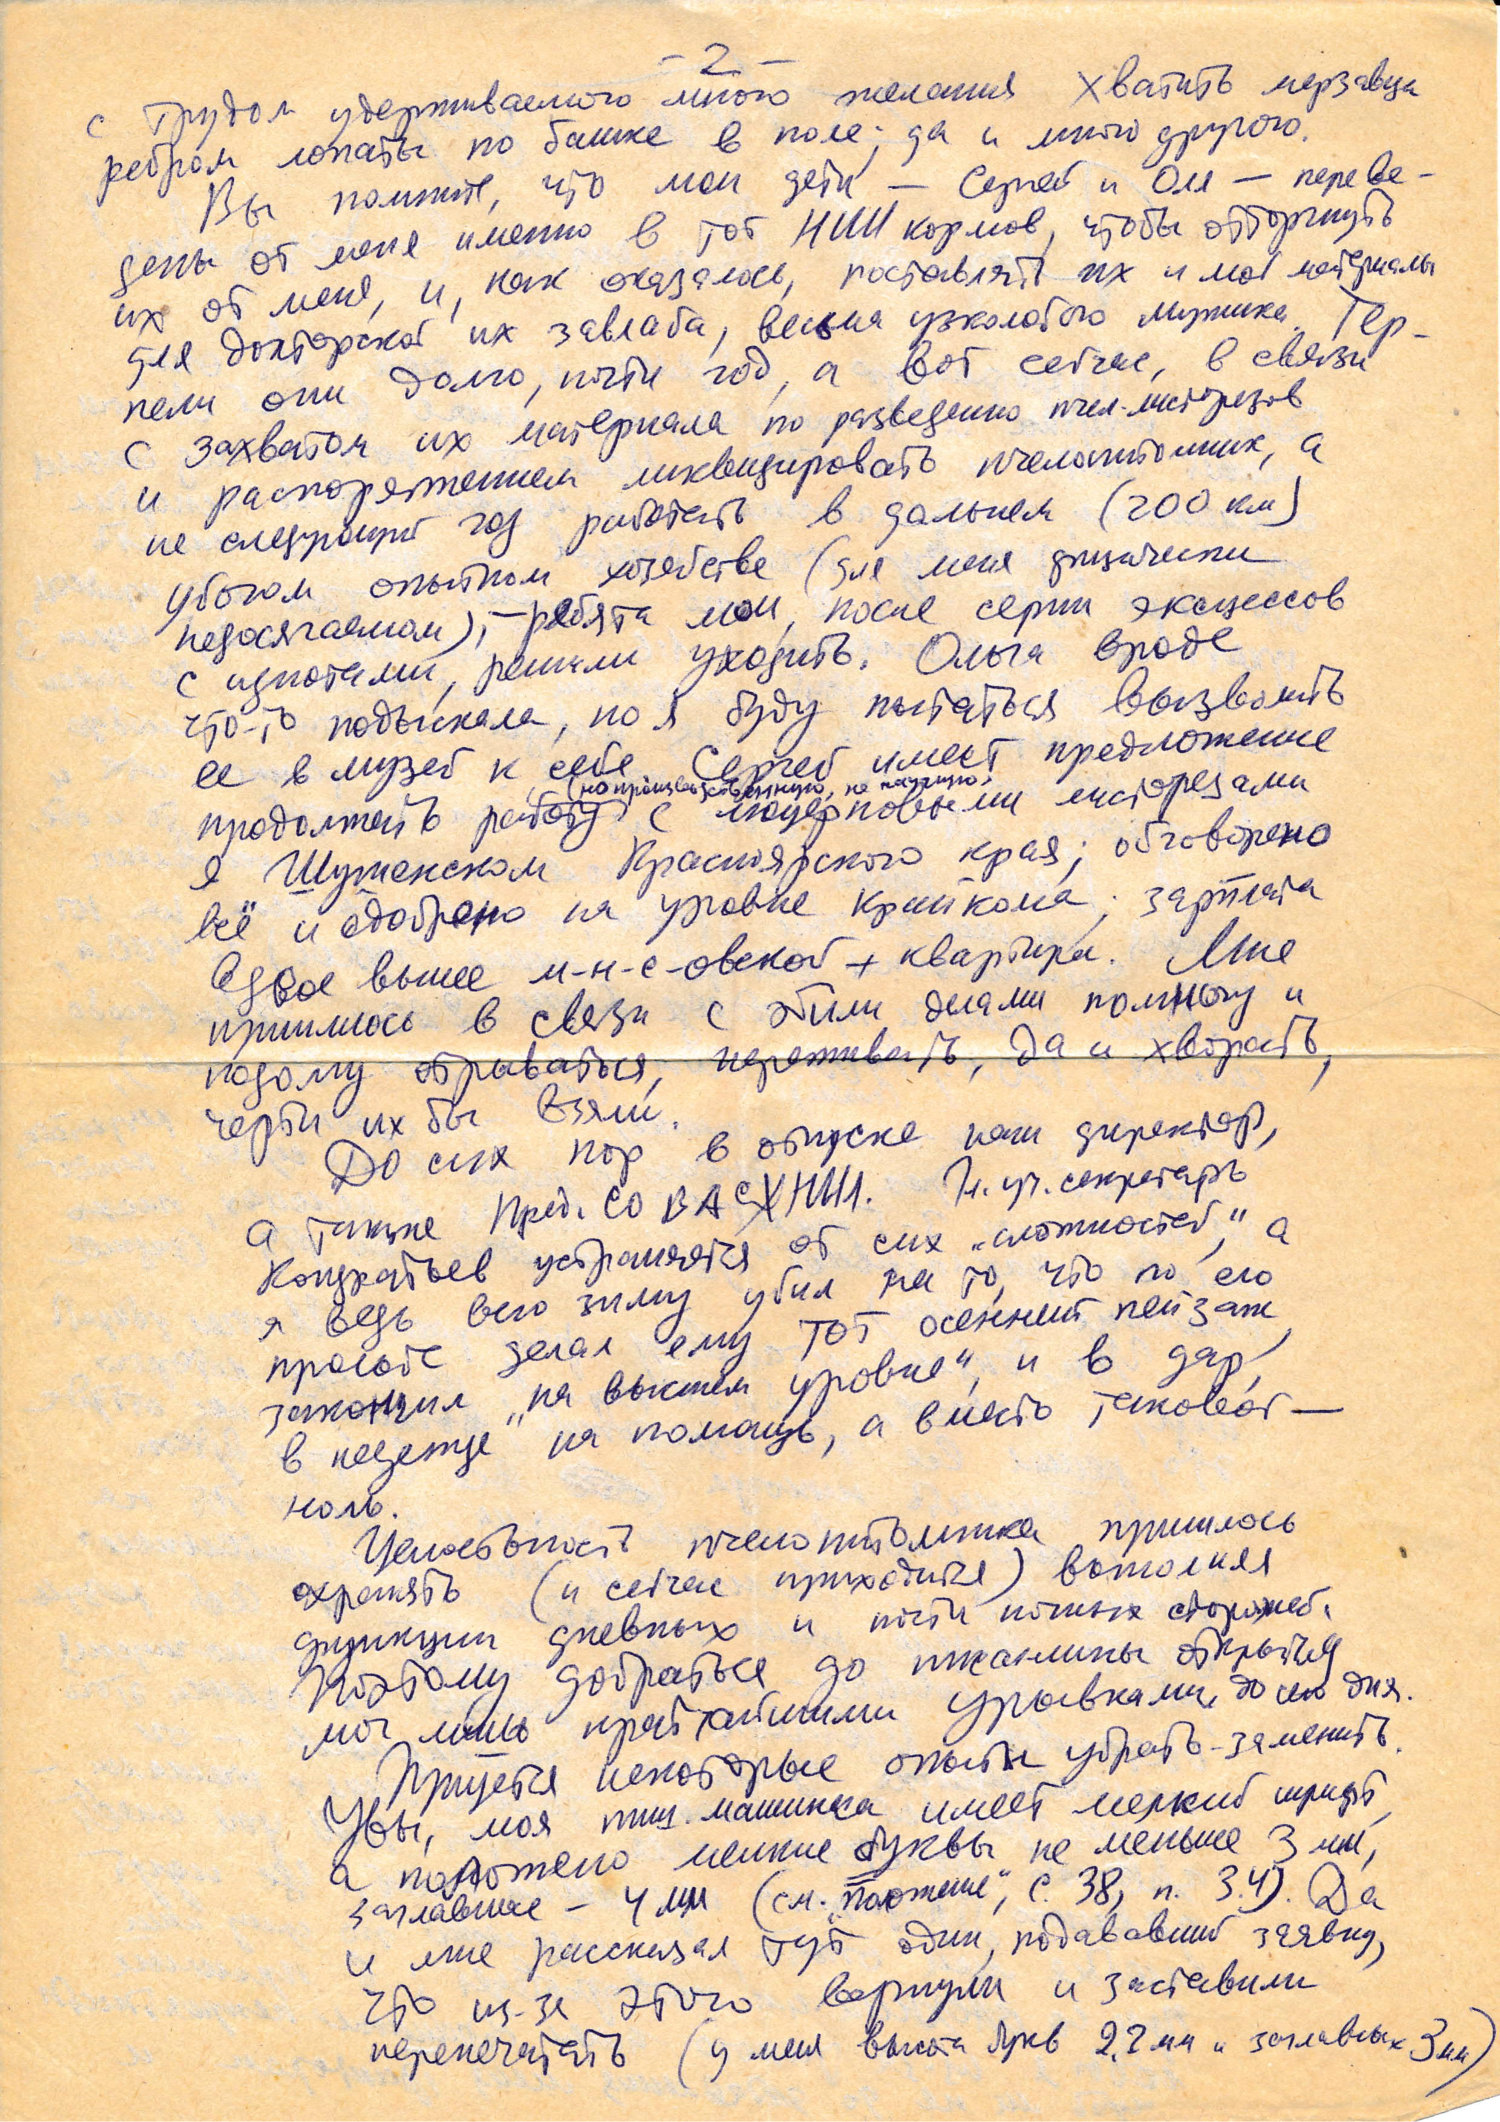 - 2 -
с трудом удерживаемого мною желания хватить мерзавца
ребром лопаты по башке в поле; да и много другого.
Вы помните, что мои дети — Сергей и Оля — переве-
дены от меня именно в тот НИИ кормов, чтобы отторгнуть
их от меня, и, как оказалось, поставлять их и мои материалы
для докторской их завлаба, весьма узколобого мужика. Тер-
пели они долго, почти год, а вот сейчас, в связи
с захватом их материала по разведению пчел-листорезов
и распоряжением ликвидировать пчелопитомник, а
на следующий год работать в дальнем (200 км)
убогом опытном хозяйстве (для меня физически
недосягаемом), — ребята мои, после серии эксцессов
с идиотами, решили уходить. Ольга вроде
что-то подыскала, но я буду пытаться вызволить
ее в музей к себе. Сергей имеет предложение
(но производственную, не научную)
продолжать работу с люцерновыми листорезами
в Шушенском Красноярского края; обговорено
всё и одобрено на уровне Крайкома; зарплата
вдвое выше м-н-с-овской + квартира. Мне
пришлось в связи с этими делами помногу и
подолгу отрываться, переживать, да и хворать,
черти их бы взяли.
До сих пор в отпуске наш директор,
а также Пред. СО ВАСХНИЛ. Гл. уч. секретарь
Кондратьев устраняется от сих „сложностей", а
я ведь всю зиму убил на то, что по его
просьбе делал ему тот осенний пейзаж,
закончил „на высшем уровне", и в дар,
в надежде на помощь, а вместо таковой —
ноль.
Целостность пчелопитомника пришлось
охранять (и сейчас приходится) выполняя
функции дневных и почти ночных сторожей.
Поэтому добраться до писанины открытия
мог лишь кратчайшими урывками, до сего дня.
Придется некоторые опыты убрать-заменить.
Увы, моя пиш. машинка имеет мелкий шрифт,
а положено мелкие буквы не меньше 3 мм,
заглавные – 4 мм (см. „Положение", с. 38, п. 3.4). Да
и мне рассказал тут один, подававший заявку,
что из-за этого вернули и заставили
перепечатать (у меня высота букв 2,2 мм и заглавных 3 мм)